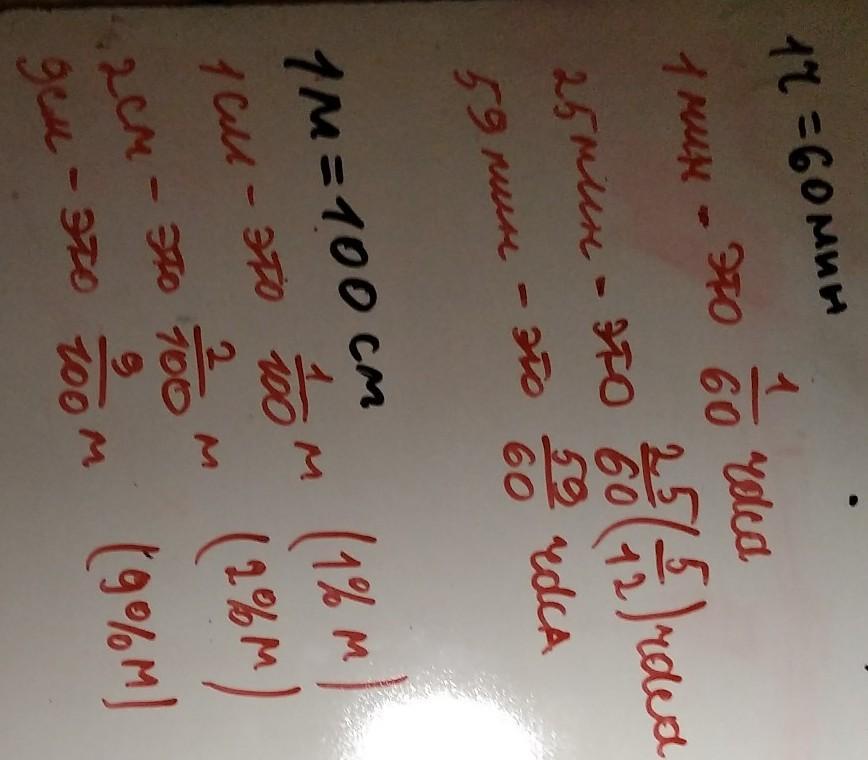 1ч = 60 мин
1 мин - это 1/60 часа
25 мин - это 25/60 (5/12) часа
59 мин - это 59/60 часа
1 м = 100 см
1 см - это 1/100 м (1% м)
2 см - это 2/100 м (2% м)
9 см - это 9/100 м (9% м)